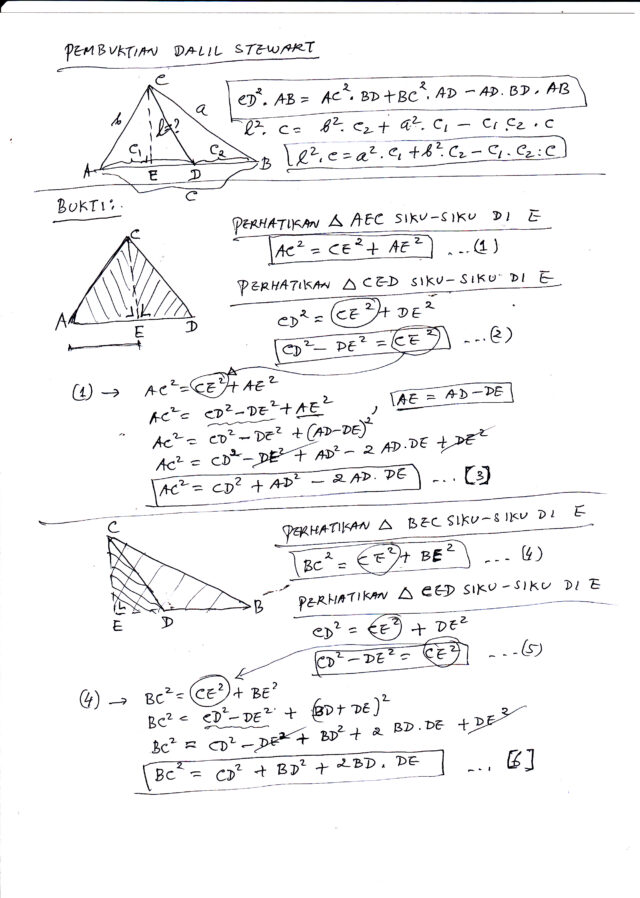 PEMBUKTIAN DALIL STEWART
C
b
a
l=?
C₁
C₂
A
E
D
B
C
CD². AB = AC². BD + BC². AD – AD. BD. AB
l². c = b². c₂ + a². c₁ – c₁. c₂. c
l². c = a². c₁ + b². c₂ – c₁. c₂. c
BUKTI:.
PERHATIKAN △ AEC SIKU-SIKU DI E
AC² = CE² + AE² ...(1)
PERHATIKAN △ CED SIKU-SIKU DI E
CD² = CE² + DE²
CD² – DE² = CE² ...(2)
C
A
E
D
(1) → AC² = CE² + AE²
AC² = CD² – DE² + AE² , AE = AD – DE
AC² = CD² – DE² + (AD–DE)²
AC² = CD² – DE² + AD² – 2 AD. DE + DE²
AC² = CD² + AD² – 2 AD. DE ... [3]
C
E
D
B
PERHATIKAN △ BEC SIKU-SIKU DI E
BC² = CE² + BE² ... (4)
PERHATIKAN △ CED SIKU-SIKU DI E
CD² = CE² + DE²
CD² – DE² = CE² ...(5)
(4) → BC² = CE² + BE²
BC² = CD² – DE² + (BD + DE)²
BC² = CD² – DE² + BD² + 2 BD. DE + DE²
BC² = CD² + BD² + 2BD. DE ... [6]